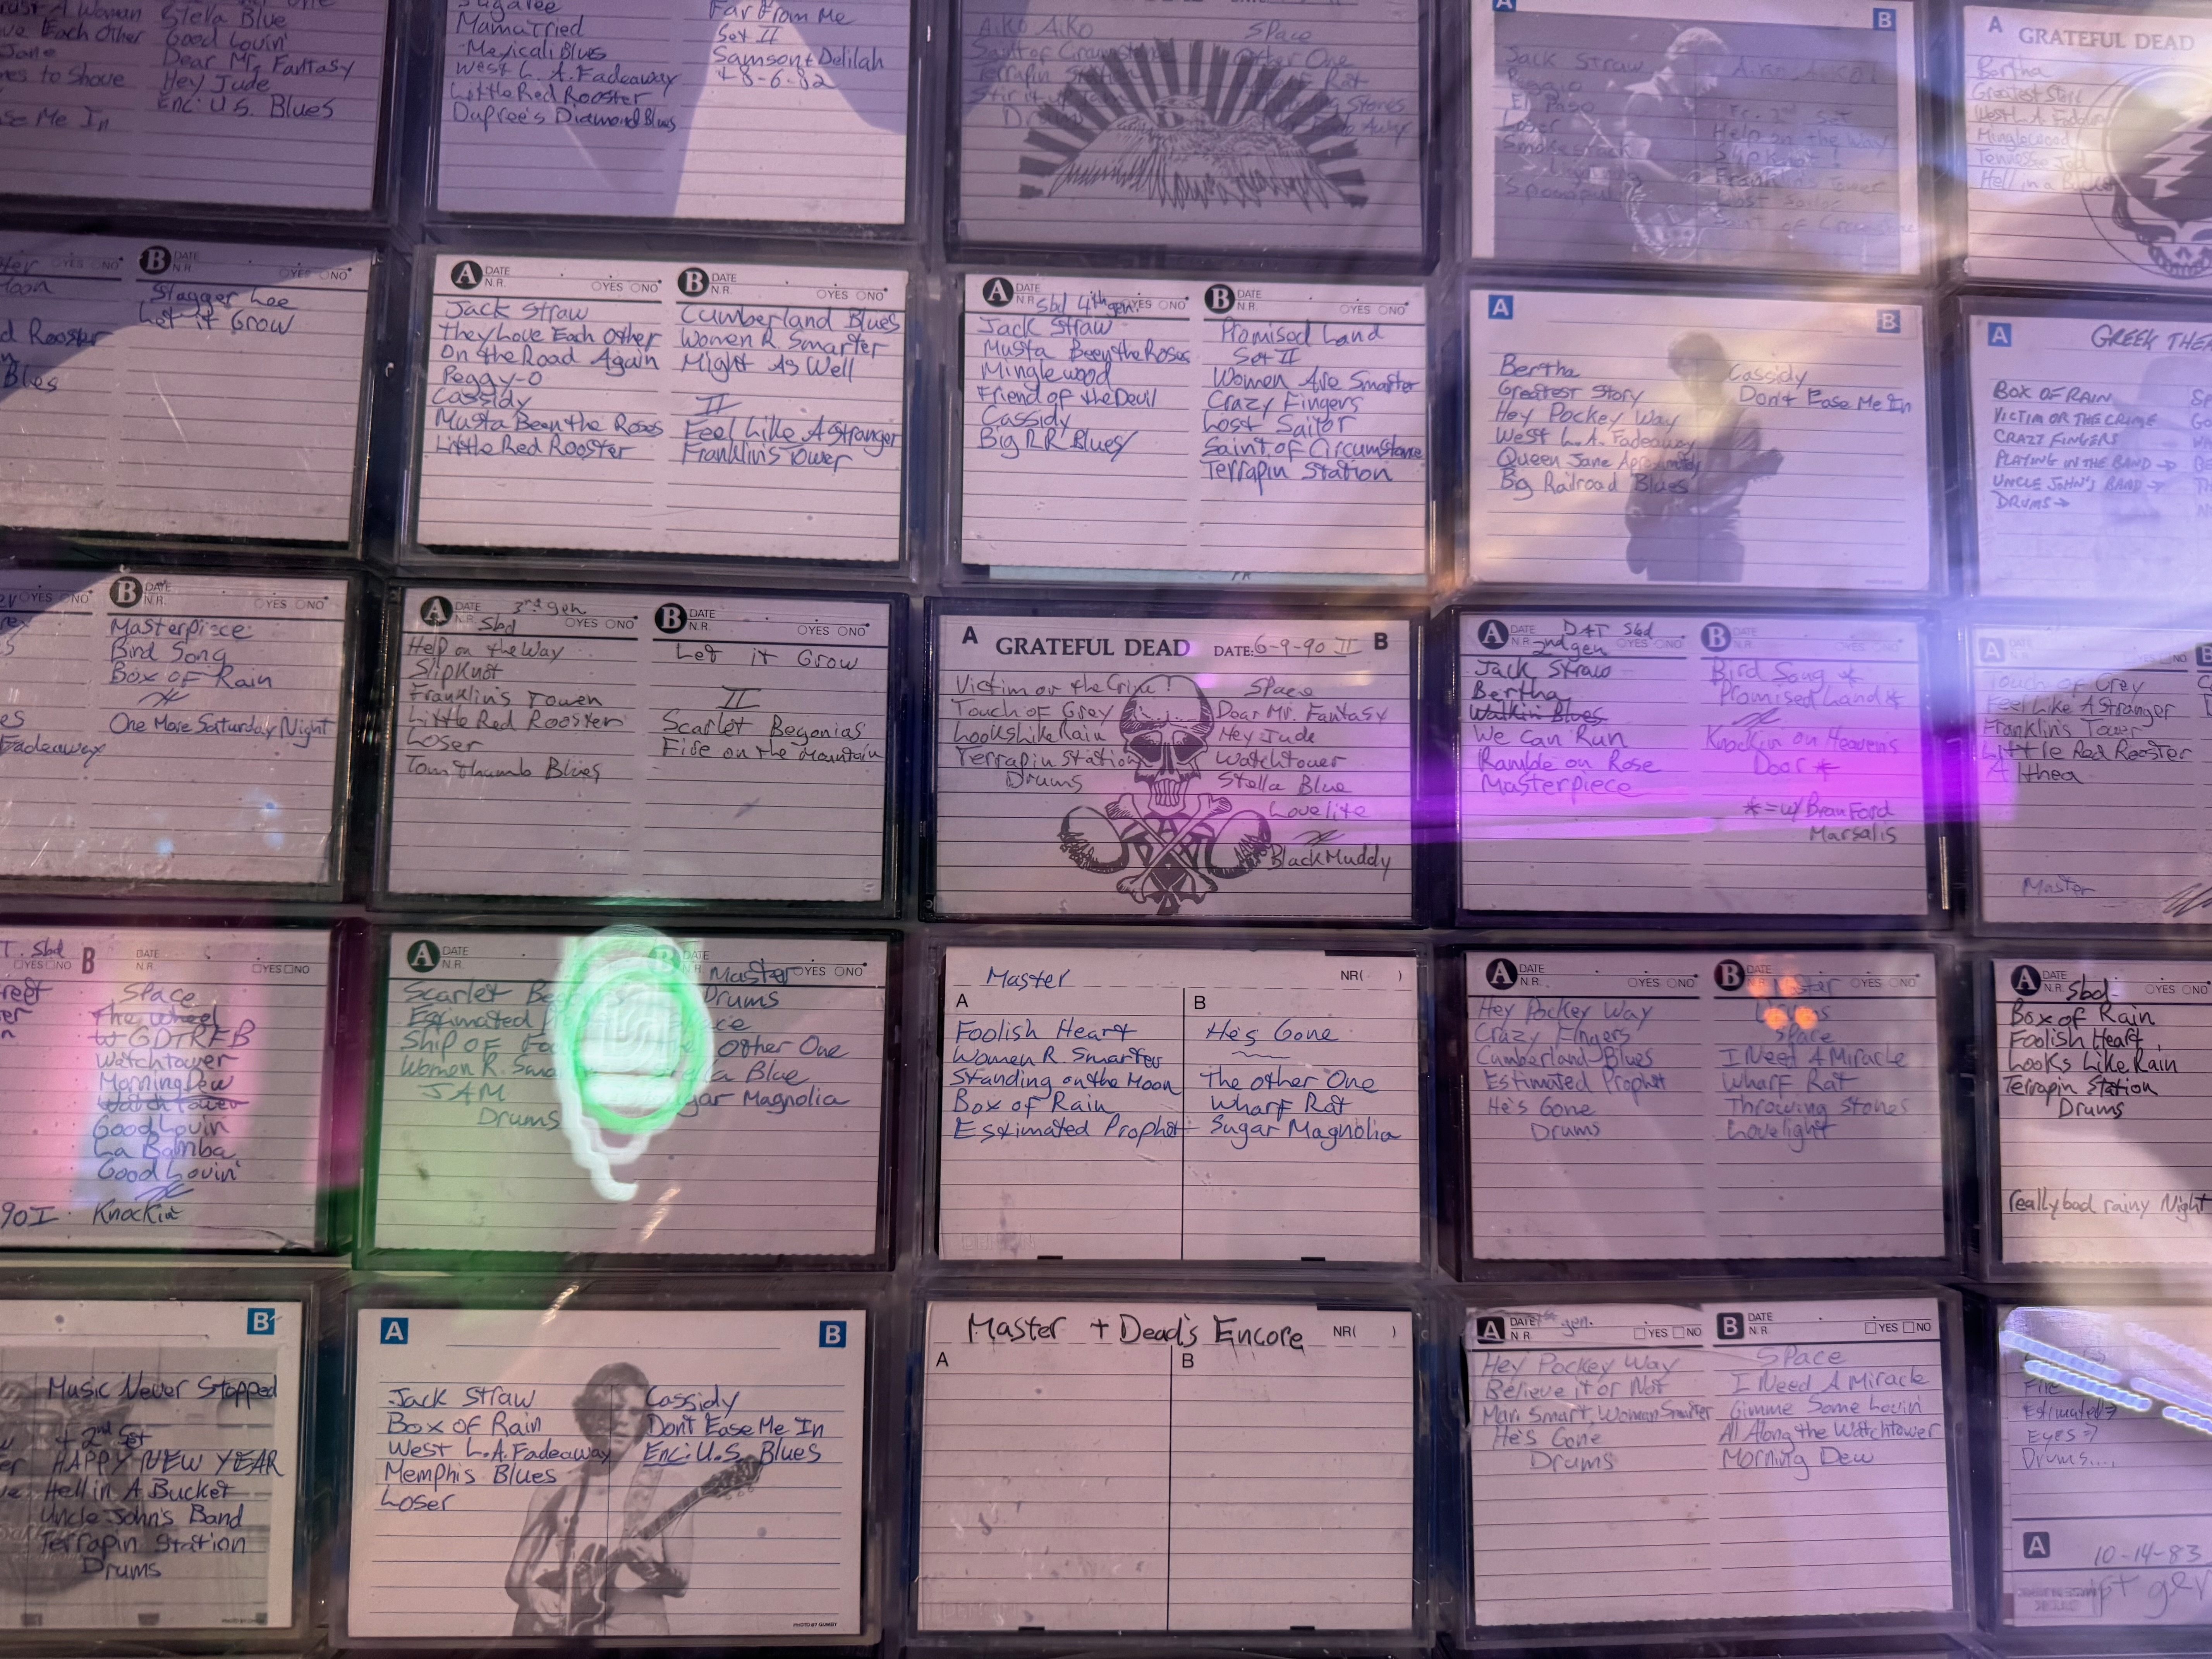 A Woman
Each Other
Jane
es to Shove
se Me In
Stella Blue
Good Lovin'
Dear Mr. Fantasy
Hey Jude
Enc: U.S. Blues
Sugaree
Mama Tried
Mexicali Blues
West L.A. Fadeaway
Little Red Rooster
Dupree's Diamond Blues
Far From Me
Set II
Samson + Delilah
+ 8-6-82
Aiko Aiko
Saint of Circumstance
Terrapin Station
Space
Other One
Wharf Rat
Stones
Away
A
B
Jack Straw
Peggio
El Paso
Loser
Smokestack
Spoonful
Fr. 2nd Set
Help on the Way
Slipknot!
Franklin's Tower
Lost Sailor
Saint of Circumstance
A GRATEFUL DEAD
Bertha
Greatest Story
West L.A. Fadeaway
Minglewood
Tennessee Jed
Hell in a Bucket
YES NO
d Rooster
Blues
B DATE
N.R. YES NO
Stagger Lee
Let it Grow
A DATE
N.R. YES NO
Jack Straw
They Love Each Other
On the Road Again
Peggy-O
Cassidy
Musta Been the Roses
Little Red Rooster
B DATE
N.R. YES NO
Cumberland Blues
Women R Smarter
Might As Well
II
Feel Like A Stranger
Franklin's Tower
A DATE
N.R. Sbd 4th gen. YES NO
Jack Straw
Musta Been the Roses
Minglewood
Friend of the Devil
Cassidy
Big RR Blues
B DATE
N.R. YES NO
Promised Land
Set II
Women Are Smarter
Crazy Fingers
Lost Sailor
Saint of Circumstance
Terrapin Station
A
B
Bertha
Greatest Story
Hey Pockey Way
West L.A. Fadeaway
Queen Jane Aproximatly
Big Railroad Blues
Cassidy
Don't Ease Me In
A
GREEK THEA
BOX OF RAIN
VICTIM OR THE CRIME
CRAZY FINGERS
PLAYING IN THE BAND →
UNCLE JOHN'S BAND →
DRUMS →
YES NO
Fadeaway
B DATE
N.R. YES NO
Masterpiece
Bird Song
Box of Rain
One More Saturday Night
A DATE 3rd gen
N.R. Sbd YES NO
Help on the Way
Slipknot
Franklin's Tower
Little Red Rooster
Loser
Tom Thumb Blues
B DATE
N.R. YES NO
Let it Grow
II
Scarlet Begonias
Fire on the Mountain
A GRATEFUL DEAD DATE: 6-9-90 II B
Victim or the Crime!
Touch of Grey
Looks Like Rain
Terrapin Station
Drums
Space
Dear Mr. Fantasy
Hey Jude
Watchtower
Stella Blue
Lovelite
Black Muddy
A DATE DAT Sbd
N.R. 2nd gen YES NO
Jack Straw
Bertha
Walkin Blues
We Can Run
Ramble on Rose
Masterpiece
B DATE
N.R. YES NO
Bird Song *
Promised Land *
Knockin on Heavens
Door *
* = w/ Branford
Marsalis
A
Touch of Grey
Feel Like A Stranger
Franklin's Tower
Little Red Rooster
Althea
Master
T. Sbd
YES NO
90 I
B DATE
N.R. YES NO
Space
The Wheel
GDTRFB
Watchtower
Morning Dew
Watchtower
Good Lovin
La Bamba
Good Lovin'
Knockin
A DATE
N.R.
Scarlet
Estimated
Ship of
Women R. Sma
JAM
Drums
B DATE
N.R. Master YES NO
Drums
Other One
Blue
Magnolia
Master NR( )
A
Foolish Heart
Women R Smarter
Standing on the Moon
Box of Rain
Estimated Prophet
B
He's Gone
The Other One
Wharf Rat
Sugar Magnolia
A DATE
N.R. YES NO
Hey Pockey Way
Crazy Fingers
Cumberland Blues
Estimated Prophet
He's Gone
Drums
B DATE
N.R. Master YES NO
Space
I Need A Miracle
Wharf Rat
Throwing Stones
Lovelight
A DATE
N.R. Sbd YES NO
Box of Rain
Foolish Heart
Looks Like Rain
Terrapin Station
Drums
really bad rainy Night
B
Music Never Stopped
+ 2nd Set
HAPPY NEW YEAR
Hell in A Bucket
Uncle John's Band
Terrapin Station
Drums
A
B
Jack Straw
Box of Rain
West L.A. Fadeaway
Memphis Blues
Loser
Cassidy
Don't Ease Me In
Enc: U.S. Blues
PHOTO BY GUMBY
Master + Dead's Encore NR( )
A
B
A DATE 1st gen.
N.R. YES NO
Hey Pockey Way
Believe it or Not
Man Smart, Woman Smarter
He's Gone
Drums
B DATE
N.R. YES NO
Space
I Need A Miracle
Gimme Some Lovin
All Along the Watchtower
Morning Dew
Fire
Estimated →
Eyes →
Drums....
A
10-14-83